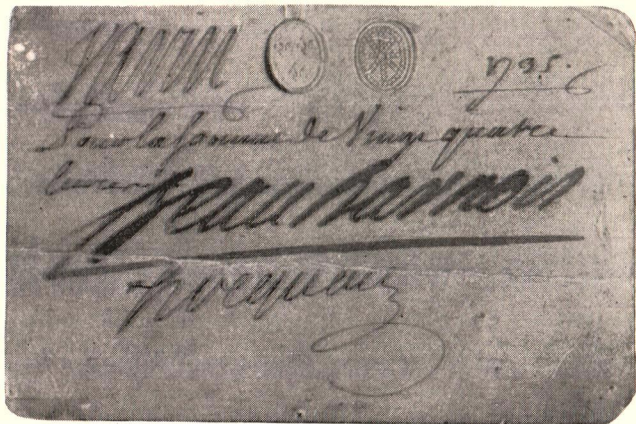 Varin 1735.
Pour la somme de Vingt quatre
livres
Beauharnois
hocquart